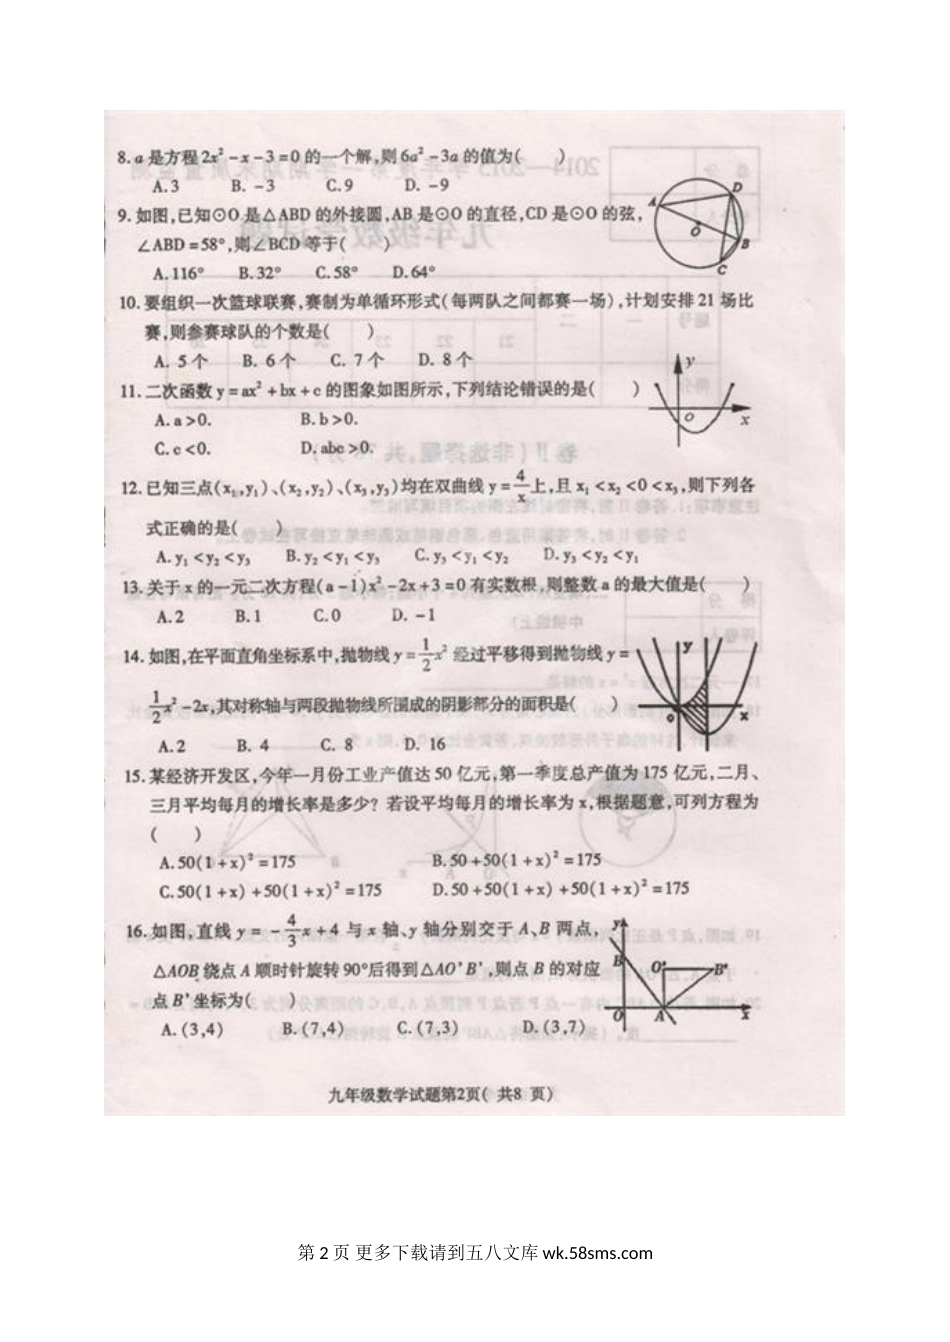 8. a 是方程 2x² - x - 3 = 0 的一个解,则 6a² - 3a 的值为(    )
A. 3    B. -3    C. 9    D. -9
9. 如图,已知⊙O 是△ABD 的外接圆,AB 是⊙O 的直径,CD 是⊙O 的弦,
∠ABD = 58°,则∠BCD 等于(    )
A. 116°    B. 32°    C. 58°    D. 64°
A D O B C
10. 要组织一次篮球联赛,赛制为单循环形式(每两队之间都赛一场),计划安排 21 场比
赛,则参赛球队的个数是(    )
A. 5 个    B. 6 个    C. 7 个    D. 8 个
11. 二次函数 y = ax² + bx + c 的图象如图所示,下列结论错误的是(    )
A. a > 0.    B. b > 0.
C. c < 0.    D. abc > 0.
y O x
12. 已知三点(x₁,y₁)、(x₂,y₂)、(x₃,y₃)均在双曲线 y = 4/x 上,且 x₁ < x₂ < 0 < x₃,则下列各
式正确的是(    )
A. y₁ < y₂ < y₃    B. y₂ < y₁ < y₃    C. y₃ < y₁ < y₂    D. y₃ < y₂ < y₁
13. 关于 x 的一元二次方程(a - 1)x² - 2x + 3 = 0 有实数根,则整数 a 的最大值是(    )
A. 2    B. 1    C. 0    D. -1
14. 如图,在平面直角坐标系中,抛物线 y = 1/2 x² 经过平移得到抛物线 y =
1/2 x² - 2x,其对称轴与两段抛物线所围成的阴影部分的面积是(    )
A. 2    B. 4    C. 8    D. 16
y o x
15. 某经济开发区,今年一月份工业产值达 50 亿元,第一季度总产值为 175 亿元,二月、
三月平均每月的增长率是多少? 若设平均每月的增长率为 x,根据题意,可列方程为
(    )
A. 50(1 + x)² = 175    B. 50 + 50(1 + x)² = 175
C. 50(1 + x) + 50(1 + x)² = 175    D. 50 + 50(1 + x) + 50(1 + x)² = 175
16. 如图,直线 y = - 4/3 x + 4 与 x 轴、y 轴分别交于 A、B 两点,
△AOB 绕点 A 顺时针旋转 90°后得到△AO'B',则点 B 的对应
点 B'坐标为(    )
A. (3,4)    B. (7,4)    C. (7,3)    D. (3,7)
y B O' B' O A x
九年级数学试题第2页( 共8 页)
第 2 页 更多下载请到五八文库 wk.58sms.com